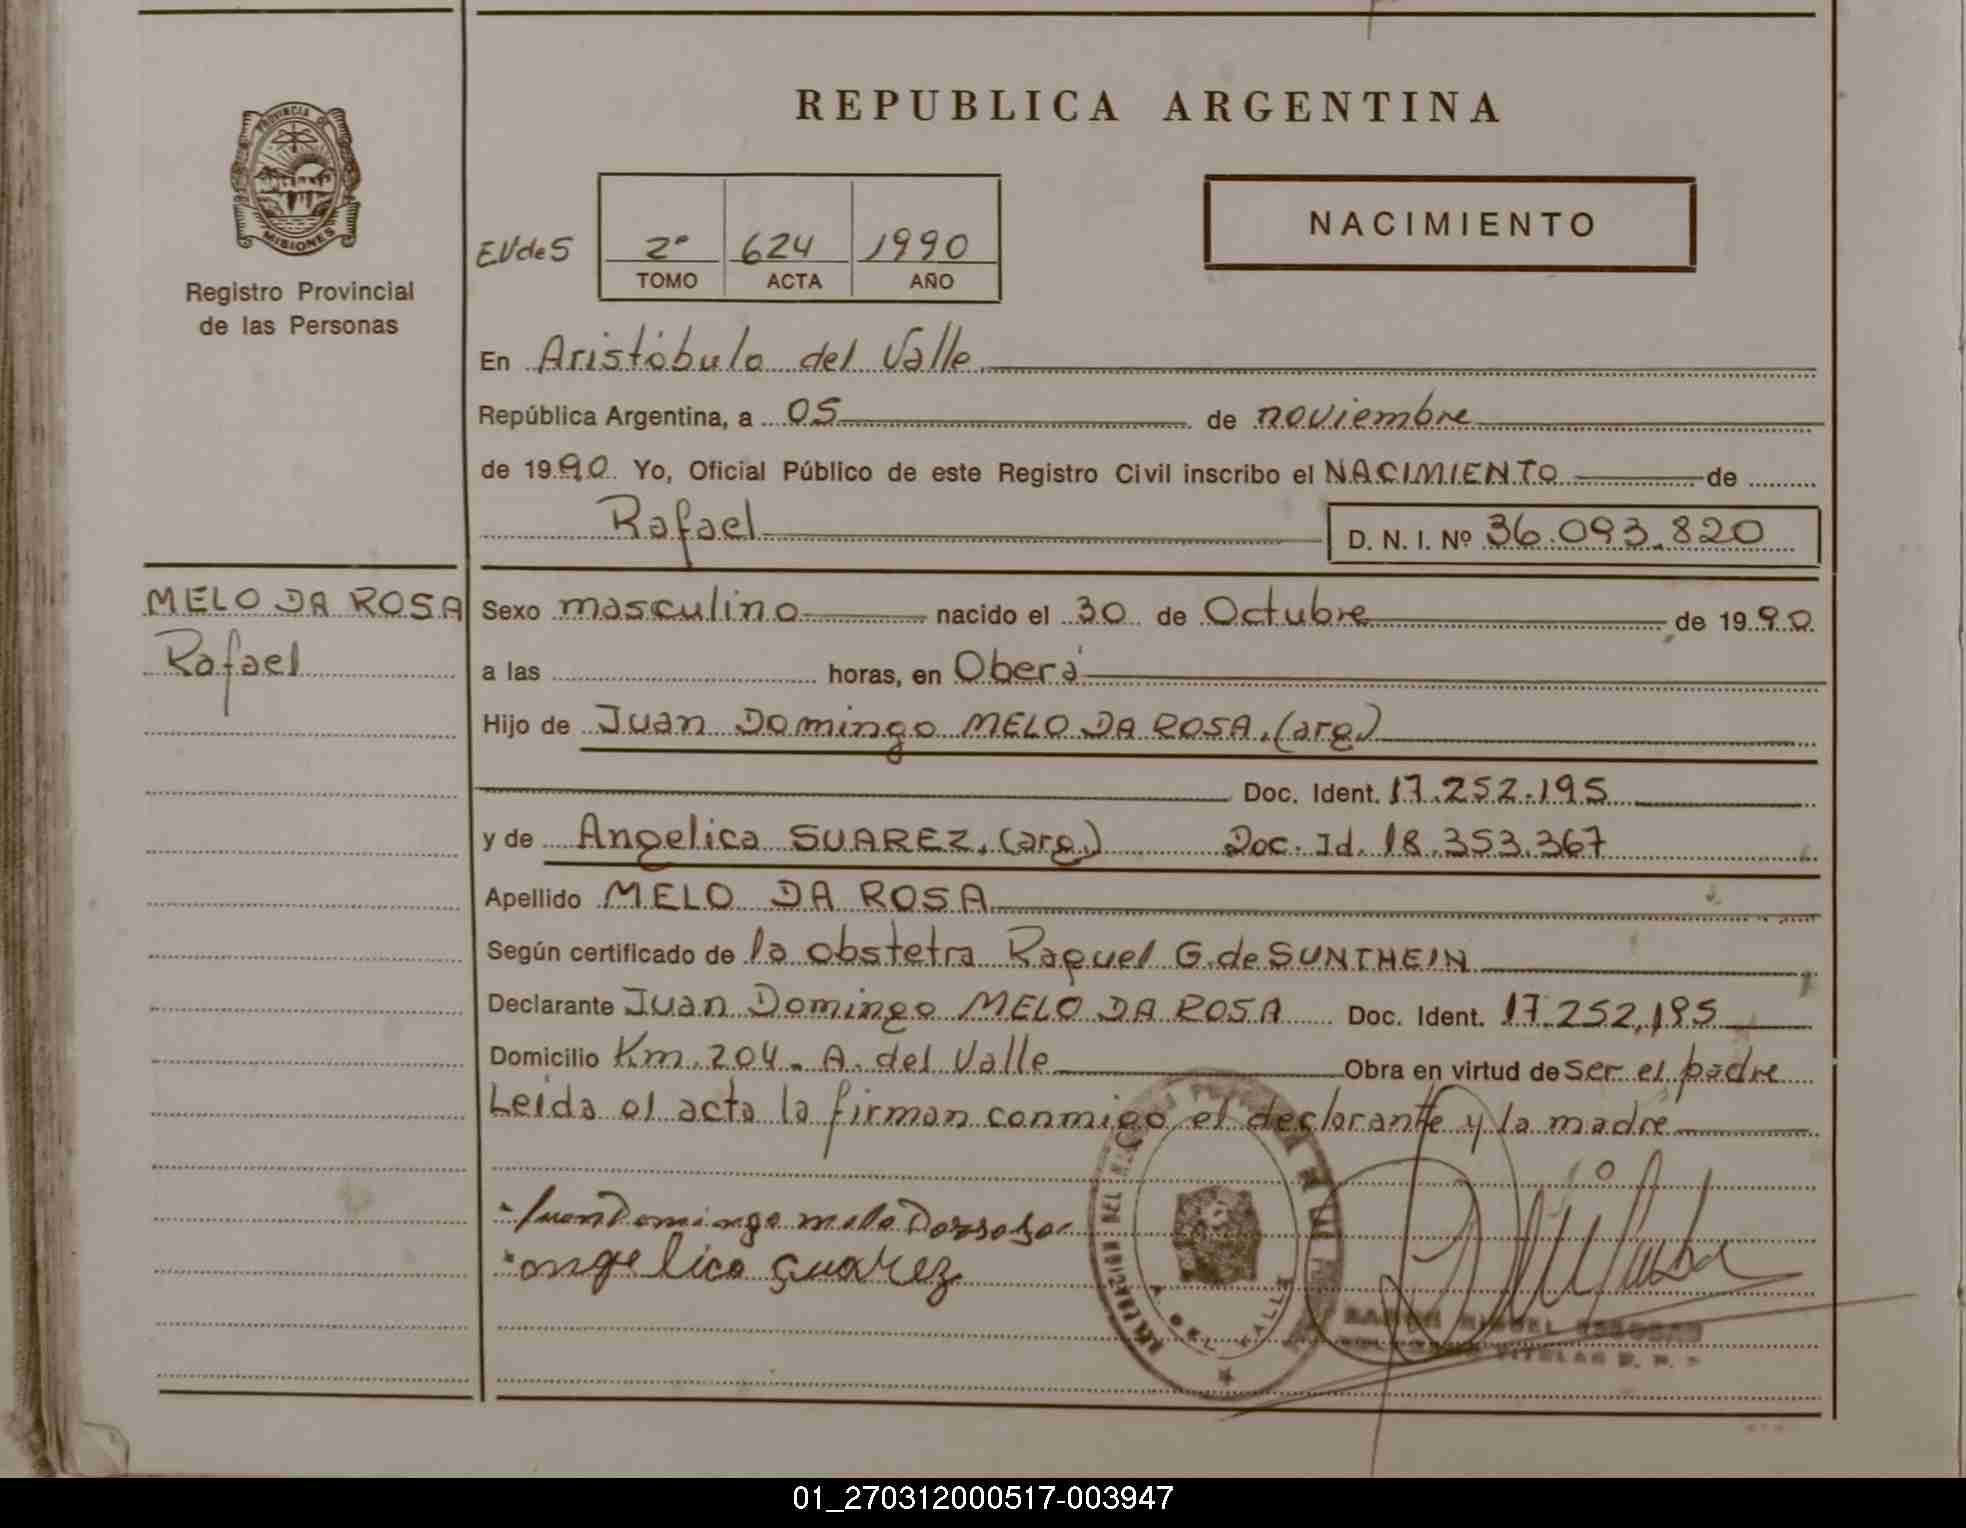 PROVINCIA DE
MISIONES
Registro Provincial
de las Personas
MELO DA ROSA
Rafael
REPUBLICA ARGENTINA
EVdeS
2º 624 1990
TOMO ACTA AÑO
NACIMIENTO
En Aristóbulo del Valle
República Argentina, a 05 de noviembre
de 1990 Yo, Oficial Público de este Registro Civil inscribo el NACIMIENTO de
Rafael D. N. I. Nº 36.093.820
Sexo masculino nacido el 30 de Octubre de 1990
a las horas, en Oberá
Hijo de Juan Domingo MELO DA ROSA. (arg.)
Doc. Ident. 17.252.195
y de Angelica SUAREZ. (arg.) Doc. Id. 18.353.367
Apellido MELO DA ROSA
Según certificado de la obstetra Raquel G. de SUNTHEIN
Declarante Juan Domingo MELO DA ROSA Doc. Ident. 17.252.195
Domicilio Km. 204 - A. del Valle Obra en virtud de ser el padre
Leida el acta la firman conmigo el declarante y la madre
Juan Domingo melo
angelica suarez
A. DEL VALLE
01_270312000517-003947